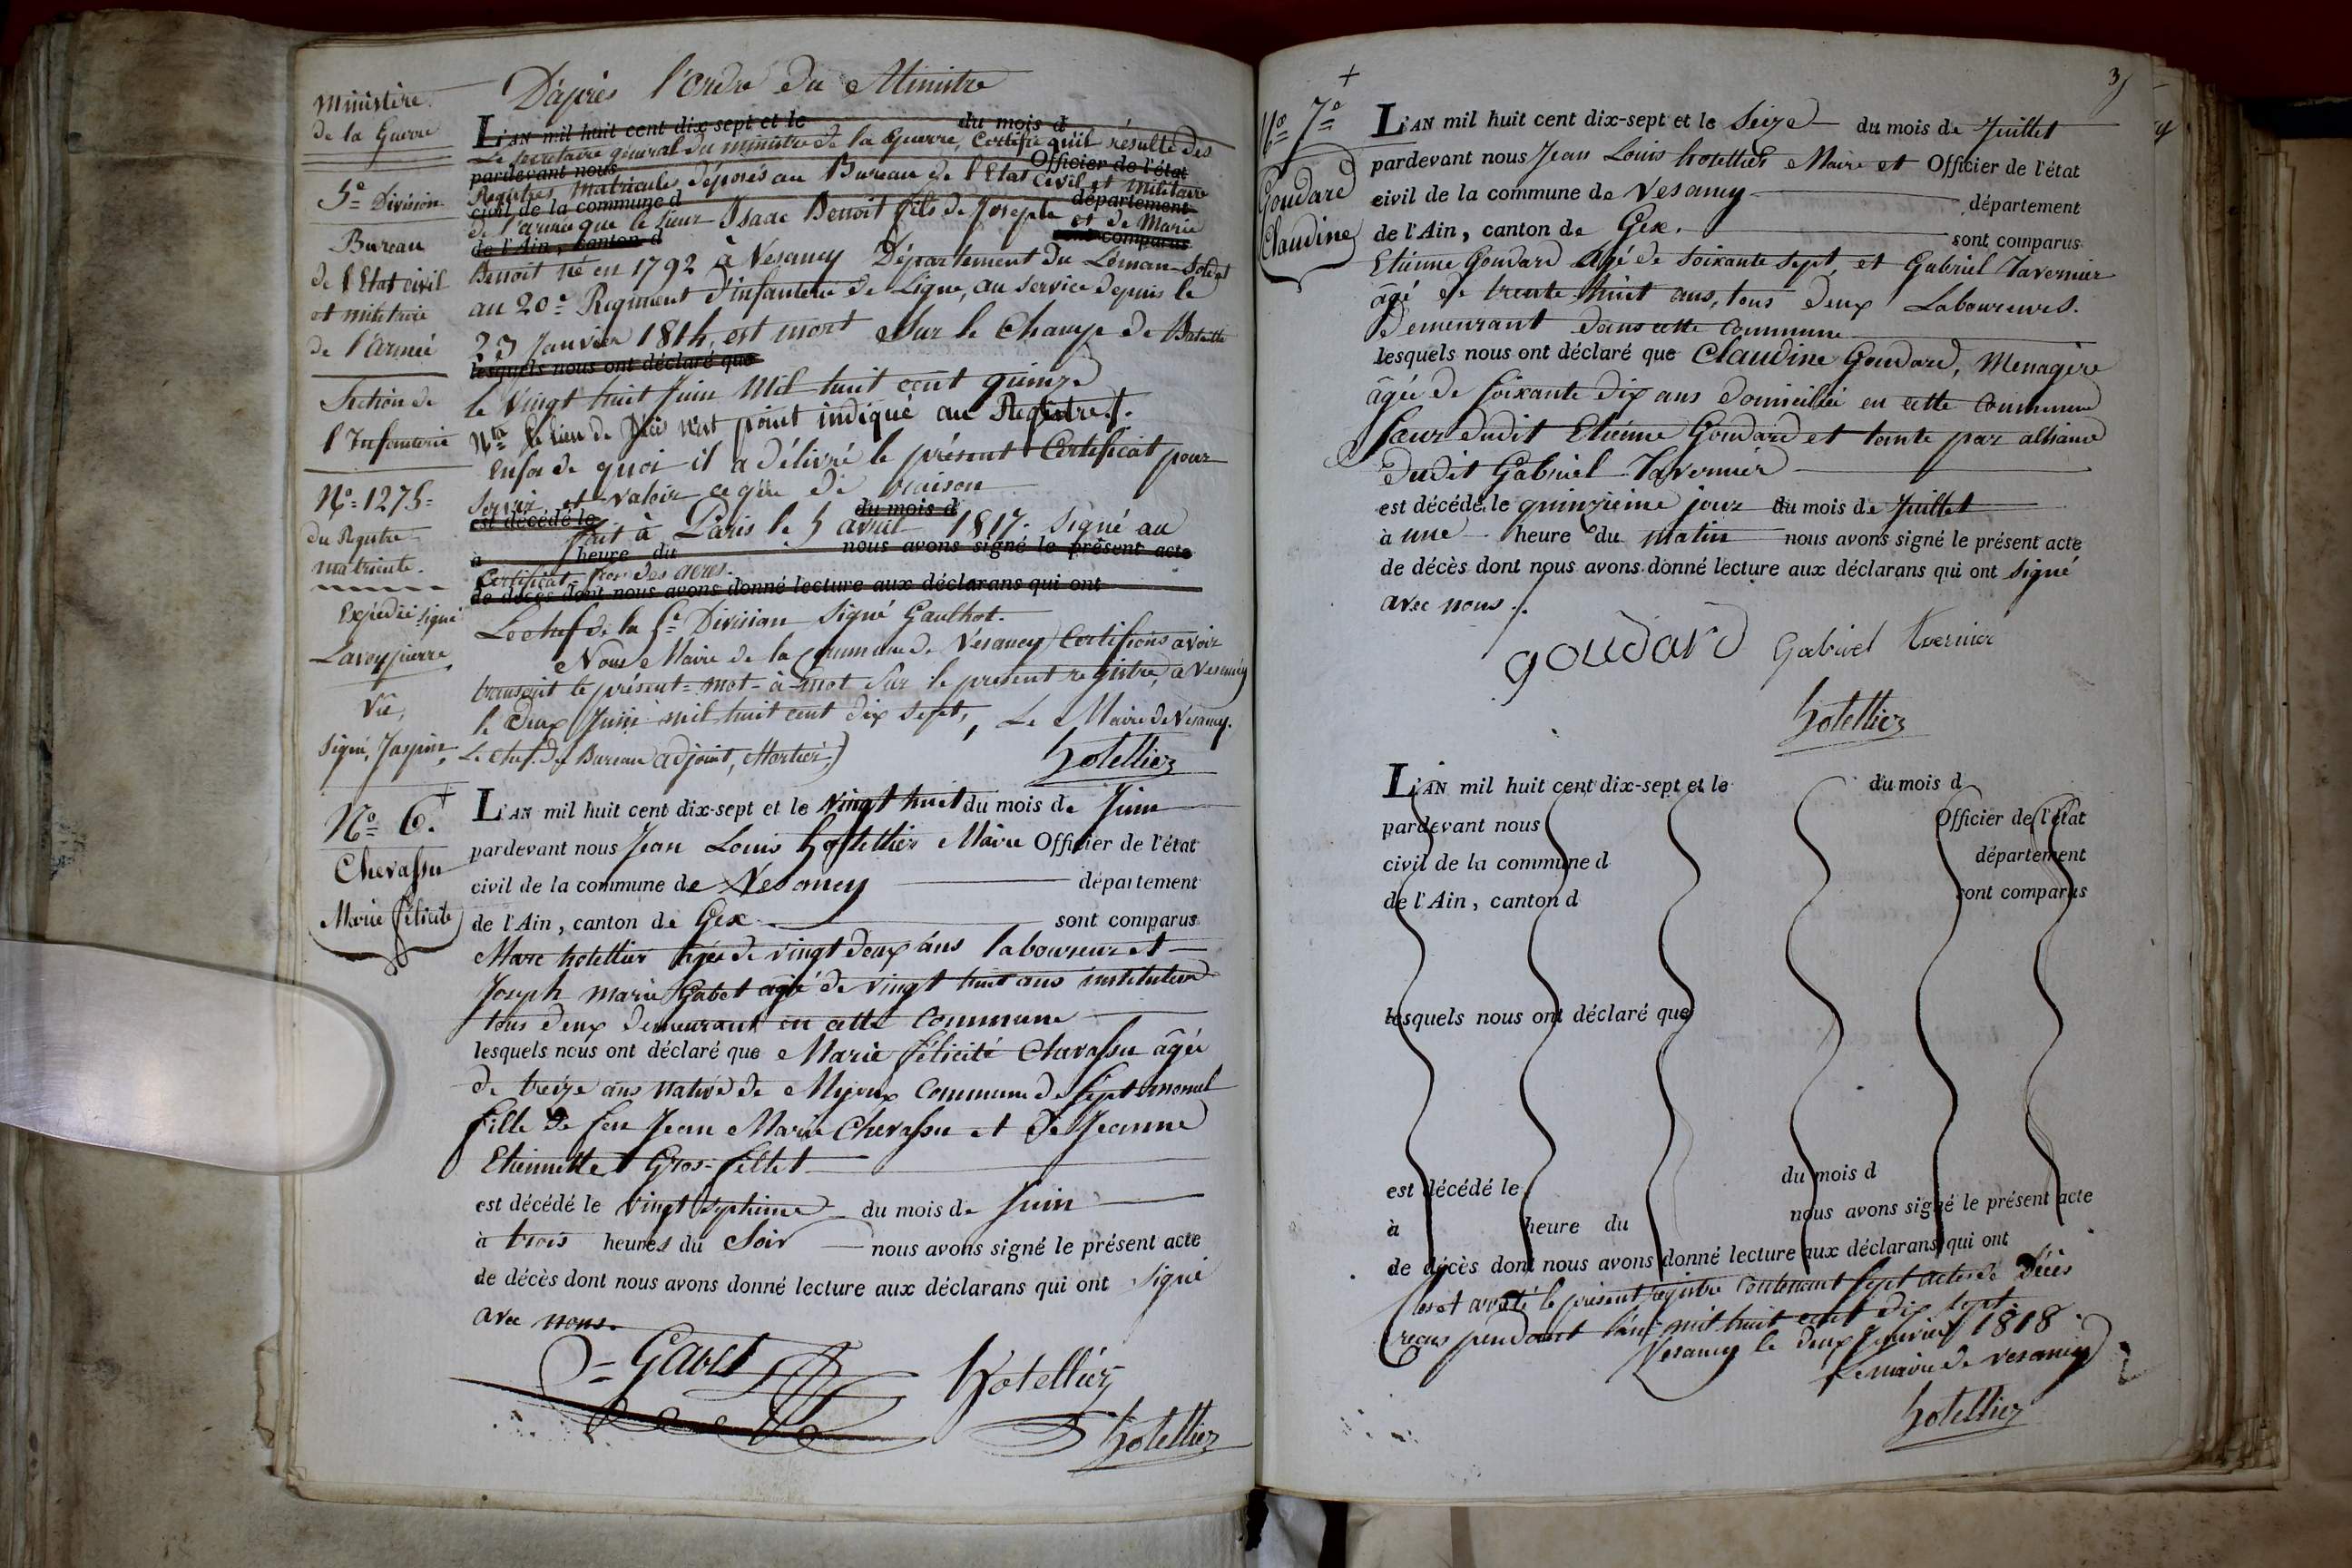 Ministère
de la Guerre
5e Division
Bureau
de l'Etat civil
et militaire
de l'armée
Section de
l'Infanterie
No 1275
du Registre
matricule.
Expédié signé
Lavoypierre
Vu,
signé, Jaspin,
D'après l'ordre du Ministre
L'AN mil huit cent dix-sept et le du mois d
Le secretaire général du ministre de la Guerre, Certifie qu'il résulte des
pardevant nous Officier de l'état
Registres matricules déposés au Bureau de l'Etat Civil et militaire
civil de la commune d département
de l'armée que le sieur Isaac Benoit fils de Joseph et de Marie
de l'Ain, canton d sont comparus
Benoit né en 1792 à Vesancy Département du Léman Soldat
au 20e Regiment d'infanterie de Ligne, au service depuis le
23 Janvier 1814, est mort sur le Champ de Bataille
lesquels nous ont déclaré que
le vingt huit Juin mil huit cent quinze
Nta le lieu de décès n'est point indiqué au Registre.
Enfoi de quoi il a délivré le présent Certificat pour
servir et valoir ce que de raison
est décédé le du mois d
fait à Paris le 5 avril 1817. Signé au
à heure du nous avons signé le présent acte
Certificat
de décès dont nous avons donné lecture aux déclarans qui ont
Le chef de la 5e Division signé Gaulhot.
Nous Maire de la commune de Vesancy Certifions avoir
transcrit le présent mot-à-mot sur le présent registre, à Vesancy
le deux Juin mil huit cent dix sept, Le Maire de Vesancy.
Le chef du Bureau adjoint, Mortier)
hotellier
No 6.
Chevassu
Marie félicité
L'AN mil huit cent dix-sept et le vingt huit du mois de Juin
pardevant nous Jean Louis hotellier Maire Officier de l'état
civil de la commune de Vesancy département
de l'Ain, canton de Gex sont comparus
Marc hotellier agée de vingt deux ans laboureur et
Joseph Marie Gabet agé de vingt huit ans instituteur
tous deux demeurant en cette Commune
lesquels nous ont déclaré que Marie félicité Chavassu âgée
de treize ans native de Mijoux Commune de Septmoncel
fille de feu Jean Marie Chevassu et de Jeanne
Etiennette Gros-fillet
est décédé le vingt septieme du mois de Juin
à trois heures du Soir nous avons signé le présent acte
de décès dont nous avons donné lecture aux déclarans qui ont signé
avec nous.
Gabet
hotellier
hotellier
3
No 7e
Goudard
Claudine
L'AN mil huit cent dix-sept et le Seize du mois de Juillet
pardevant nous Jean Louis hotellier Maire et Officier de l'état
civil de la commune de Vesancy département
de l'Ain, canton de Gex. sont comparus
Etienne Goudard agé de soixante sept, et Gabriel Tavernier
âgé de trente huit ans, tous deux Laboureurs.
Demeurant dans cette Commune
lesquels nous ont déclaré que Claudine Goudard, Menagère
âgée de soixante dix ans domiciliée en cette Commune
sœur dudit Etienne Goudard et tante par alliance
dudit Gabriel Tavernier
est décédé le quinzieme jour du mois de Juillet
à une heure du matin nous avons signé le présent acte
de décès dont nous avons donné lecture aux déclarans qui ont signé
avec nous.
goudard Gabriel tavernier
hotellier
L'AN mil huit cent dix-sept et le du mois d
pardevant nous Officier de l'état
civil de la commune d département
de l'Ain, canton d sont comparus
lesquels nous ont déclaré que
est décédé le du mois d
à heure du nous avons signé le présent acte
de décès dont nous avons donné lecture aux déclarans qui ont
Clos et arrêté le présent registre Contenant sept actes de décès
reçus pendant l'an mil huit cent dix sept.
Vesancy le deux Janvier 1818
Le maire de vesancy
hotellier